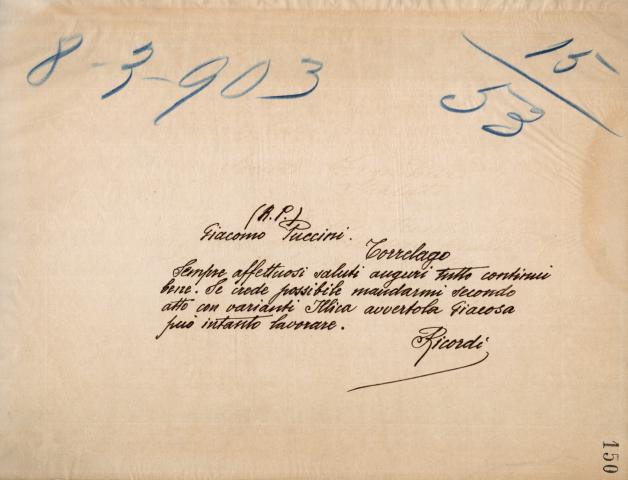 8-3-903
15/
53
(R.P.)
Giacomo Puccini.
Torrelago
Sempre affettuosi saluti auguri tutto continui
bene. Se crede possibile mandarmi secondo
atto con varianti Illica avvertola Giacosa
può intanto lavorare.
Ricordi
150